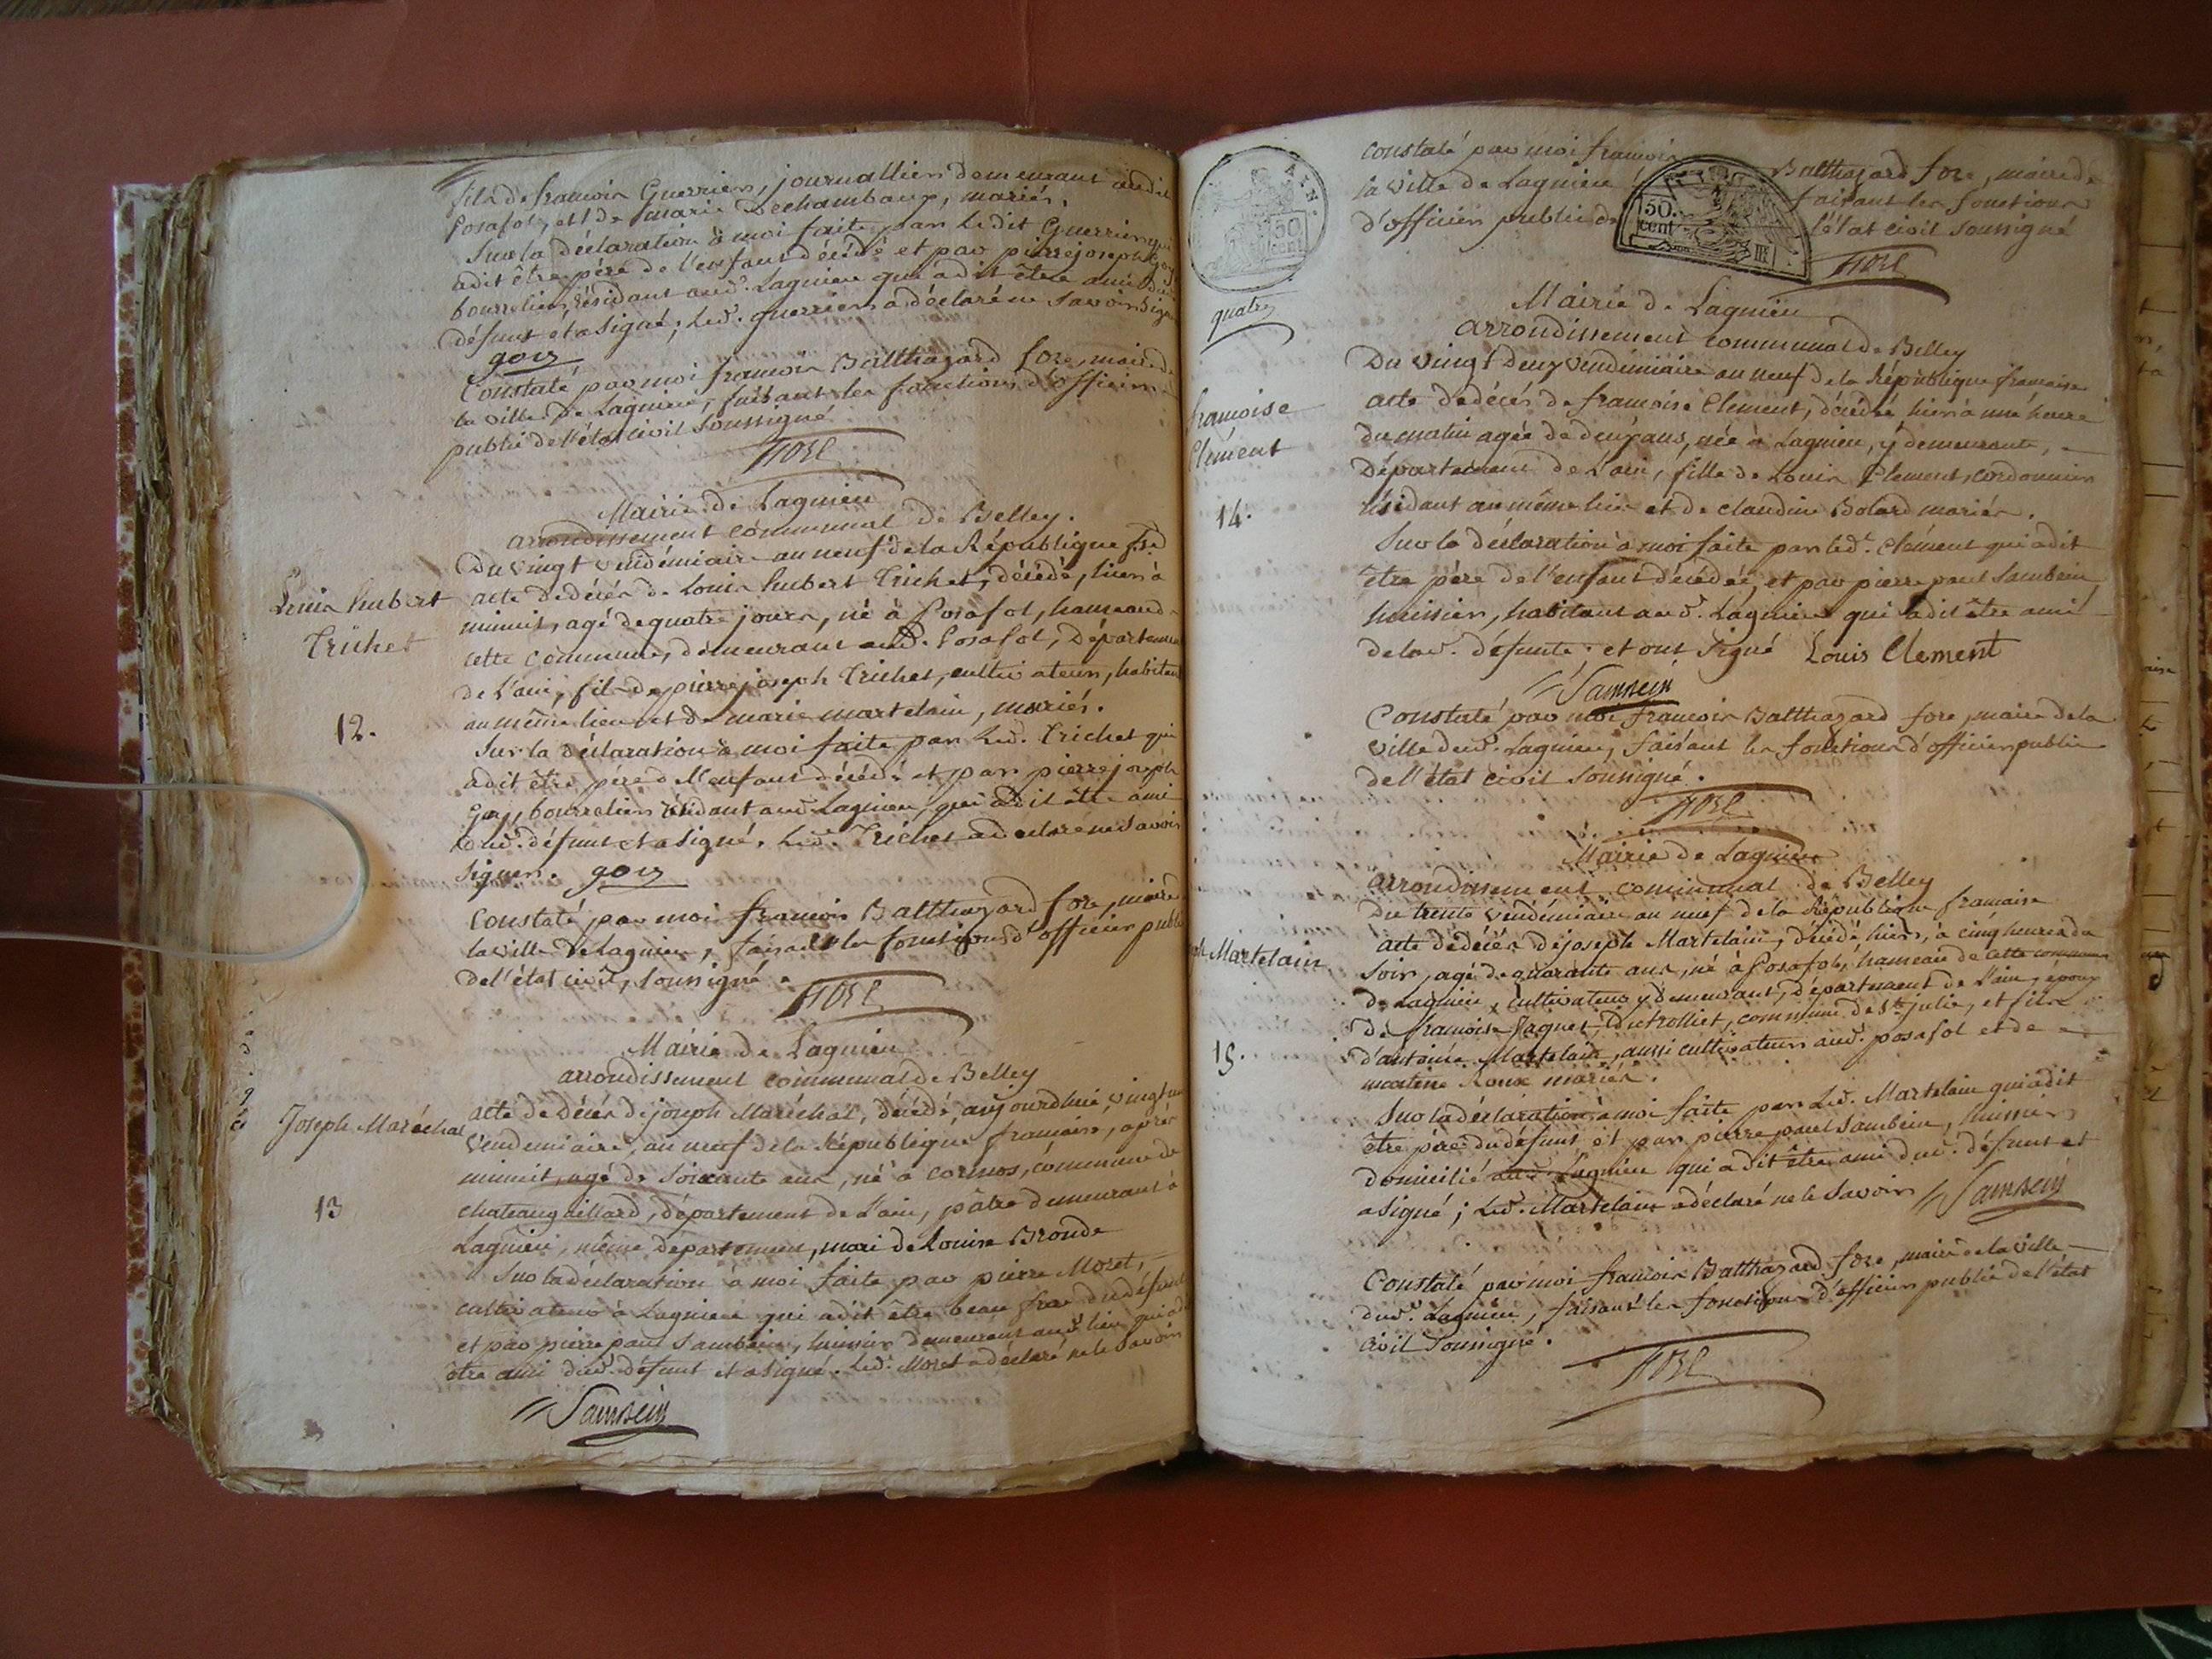 fils de françois Guerrier, journallier demeurant audit
Posafol, et de marie Dechambaux, mariés.
Sur la déclaration à moi faite par ledit Guerrier qui
a dit être père de l'enfant décédé et par pierre joseph Goy
bourrelier, résidant aud. Lagnieu qui a dit être ami dud.
défunt et a signé; led. guerrier a déclaré ne savoir signer
goy
Constaté par moi françois Balthazard fore, maire de
la ville de Lagnieu, faisant les fonctions d'officier
public de l'état civil soussigné
FORE
Mairie de Lagnieu
arrondissement communal de Belley.
Du vingt vendémiaire an neuf de la République
Louis hubert
Trichet
12.
acte de décès de Louis hubert Trichet, décédé, hier à
minuit, agé de quatre jours, né à Posafol, hameau de
cette commune, demeurant aud. Posafol, Département
de l'ain, fils de pierre joseph Trichet, cultivateur, habitant
au même lieu et de marie martelain, mariés.
Sur la déclaration à moi faite par led. Trichet qui
a dit être père de l'enfant décédé et par pierre joseph
Goy, bourrelier résidant aud. Lagnieu, qui a dit être ami
dud. défunt et a signé. Led. Trichet a déclaré ne savoir
signer. goy
Constaté par moi françois Balthazard fore, maire de
la ville de Lagnieu, faisant les fonctions d'officier public
de l'état civil, soussigné.
FORE
Mairie de Lagnieu
arrondissement communal de Belley
Joseph Maréchal
13
acte de décès de joseph Maréchal, décédé, aujourdhui, vingt un
Vendemiaire, an neuf de la République française, après
minuit, agé de soixante ans, né à cormos, commune de
chateaugaillard, département de l'ain, pâtre demeurant à
Lagnieu, même département, mari de Louise Bronde
Sur la déclaration à moi faite par pierre Moret,
cultivateur à Lagnieu qui a dit être beau frere du défunt
et par pierre paul Sambein, huissier demeurant aud. lieu qui a dit
être ami dud. défunt et a signé. Led. Moret a déclaré ne le savoir
Sambein
50
cent
quatre
constaté par moi françois Balthazard fore, maire de
la ville de Lagnieu faisant les fonctions
d'officier public de l'état civil soussigné
50
cent
FORE
Mairie de Lagnieu
arrondissement communal de Belley
Du vingt deux vendémiaire an neuf de la République française
françoise
Clément
14.
acte de décès de françoise Clement, décédée hier à une heure
du matin agée de deux ans, née à Lagnieu, y demeurante,
Département de L'ain, fille de Louis Clement, cordonnier
résidant au même lieu et de claudine Bolard mariés.
Sur la déclaration à moi faite par led. Clément qui a dit
être père de l'enfant décédée, et par pierre paul Sambein
huissier, habitant aud. Lagnieu qui a dit être ami
de lad. défunte; et ont signé Louis Clement
Sambein
Constaté par moi françois Balthazard fore, maire de la
ville dud. Lagnieu, faisant les fonctions d'officier public
de l'état civil soussigné.
FORE
Mairie de Lagnieu
arrondissement communal de Belley
du trente Vendémiaire an neuf de la République française
ph Martelain
15.
acte de décès de joseph Martelain, décédé hier, à cinq heures du
soir, agé de quarante ans, né à Posafol, hameau de cette commune
de Lagnieu, cultivateur y demeurant, département de l'ain, époux
de françoise Paquet, commune de Ste julie, et fils
d'antoine Martelain, aussi cultivateur aud. posafol et de
martine Roux mariés.
Sur la déclaration à moi faite par led. Martelain qui a dit
être père du défunt et par pierre paul Sambein, huissier
domicilié aud. Lagnieu qui a dit être ami dud. défunt et
a signé; led. Martelain a déclaré ne le savoir Sambein
Constaté par moi françois Balthazard fore, maire de la ville
dud. Lagnieu, faisant les fonctions d'officier public de l'état
civil soussigné.
FORE